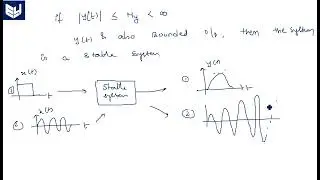 if |y(t)| ≤ My < ∞
y(t) is also Bounded o/p, then the System
is a Stable System
x(t)
①
t
Stable
system
① y(t)
t
x(t)
②
t
②